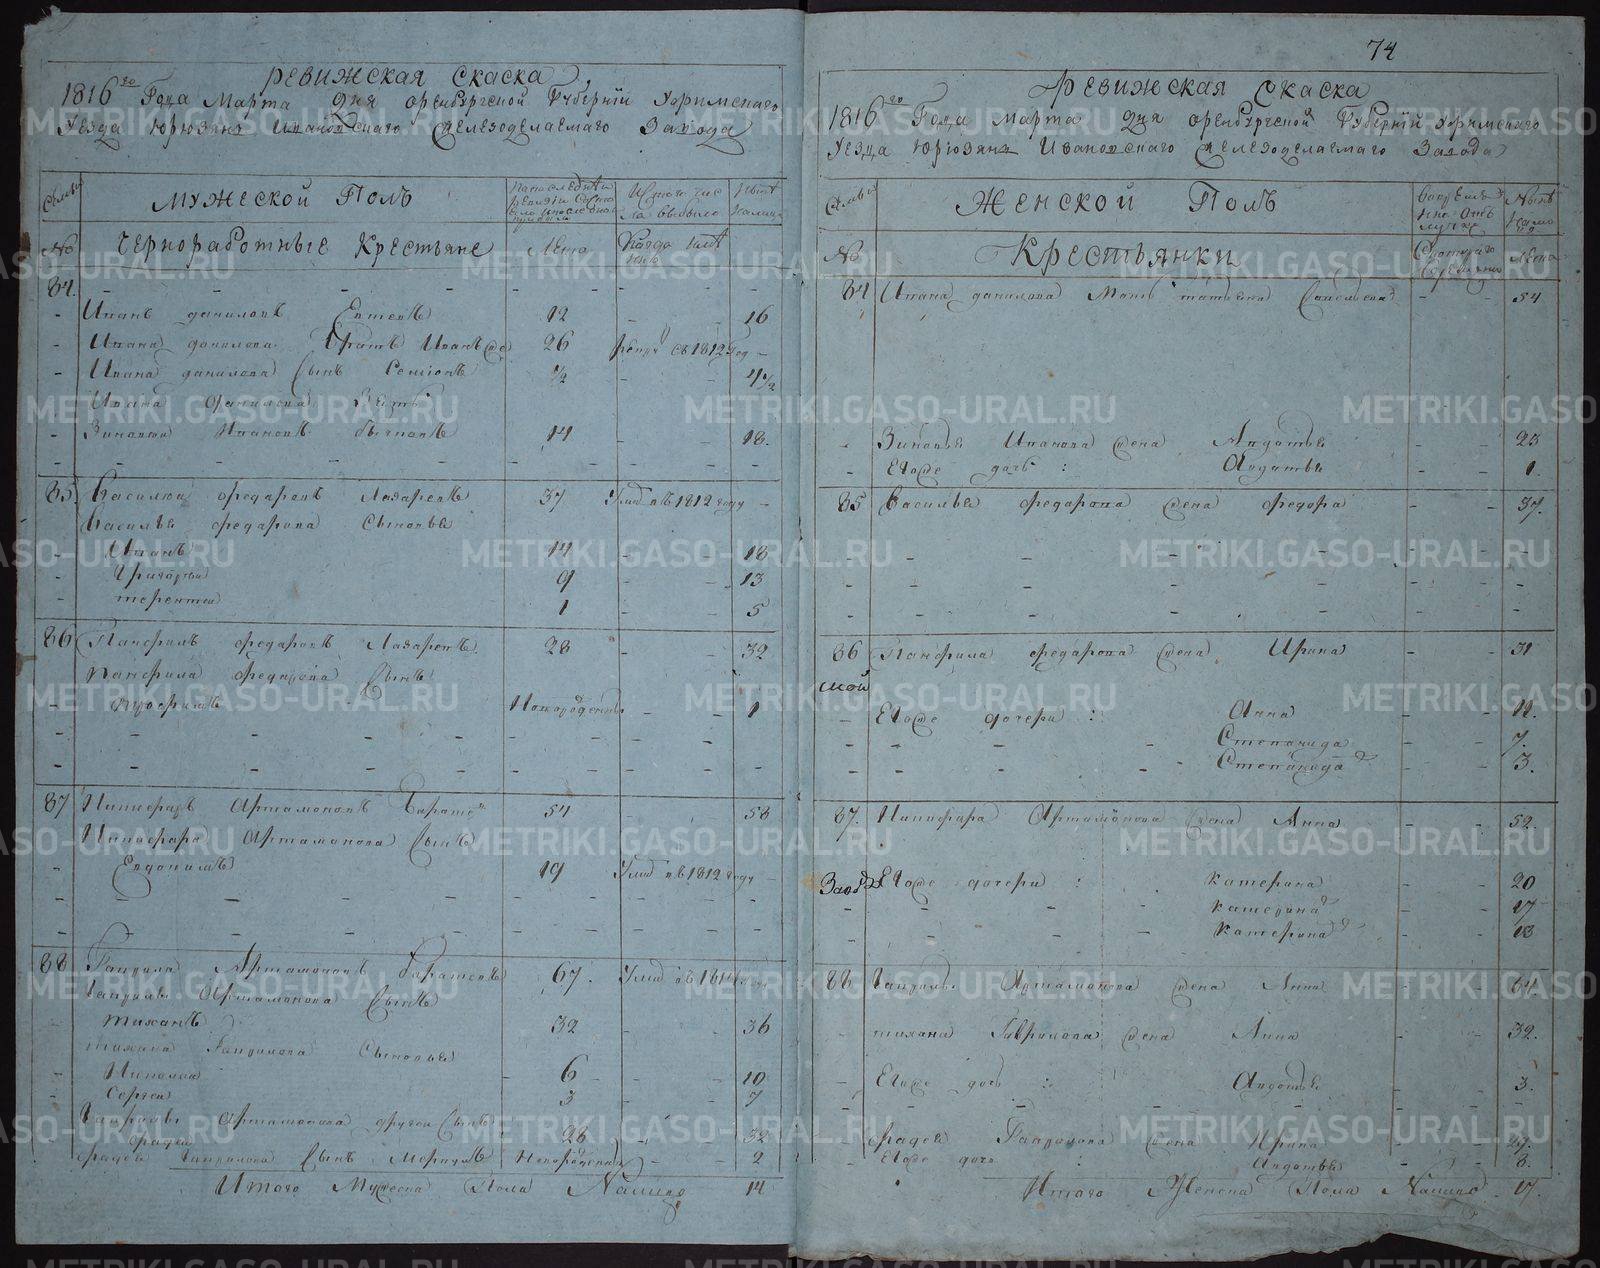 РЕВИЖСКАЯ СКАСКА
1816го Года Марта дня оренбургской Губернїи Уфимского
Уезда Юрюзань Ивановского Железоделаемаго Завода
Семьи
МУЖЕСКОЙ ПОЛЪ
Ныне
№
ЧЕРНОРАБОТНЫЕ КРЕСТЬЯНЕ
Лета
84.
Иванъ даниловъ 12 16
Ивана данилова братъ Иванъ же 26 1812 Год
Ивана данилова сынъ Семионъ ½ 4½
Ивана данилова зять
Зиновей Ивановъ 14 18.
85 Василей федаровъ Лазаревъ 37 Умре въ 1812 году
Василья федарова Сыновья
Иванъ 14 18
Григорей 9 13
терентей 1 5
86 Панфилъ федаровъ Лазаревъ 28 32
Панфила федарова Сынъ
Новорожденны 1
87 Никифаръ Артамоновъ 54 58
Никифара Артамонова Сынъ
Евдокимъ 19 Умре въ 1812 году
88 Гаврила Артамоновъ 67. Умре въ 1814 году
Гаврилы Артамонова Сынъ
тиханъ 32 36
тихана Гаврилова Сыновья
Николай 6 10
Сергей 3 7
Гаврилы Артамонова другой Сынъ
фадей 28 32
фадея Гаврилова Сынъ Меркулъ Новорожденны 2
Итого Мужеска Пола Налицо 14
74
РЕВИЖСКАЯ СКАСКА
1816го Года Марта дня оренбургской Губернїй Уфимского
Уезда Юрюзань Ивановского Железоделаемаго Завода
Семьи
ЖЕНСКОЙ ПОЛЪ
Ныне
№
КРЕСТЬЯНКИ
Лета
84 Ивана данилова Мать татьяна Савельева 54
Зиновья Иванова жена Авдотья 23
Егоже дочь : Авдотья 1.
85 Василья федарова жена федора 37.
86 Панфила федарова жена Ирина 31
ской
Егоже дочери : Анна 11.
Степанида 7.
Степанида 3.
87. Никифара Артамонова жена Анна 52.
Завод Егоже дочери : Катерина 20
Катерина 17
Катерина 13
88 Гаврилы Артамонова жена Анна 64.
тихана Гаврилова жена Анна 32.
Егоже дочь : Авдотья 3.
фадея Гаврилова жена Ирина 27.
Егоже дочь Авдотья 8.
Итого Женска Пола Налицо 17.
METRIKI.GASO-URAL.RU